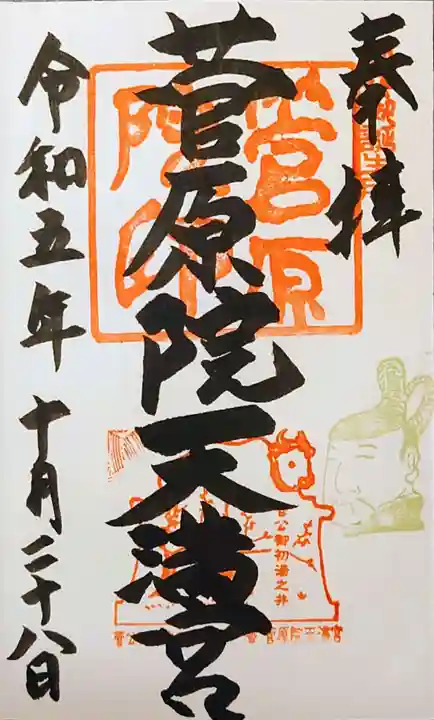 奉拝
菅原院天満宮
令和五年十月二十八日
菅原
院印
菅公御初湯之井